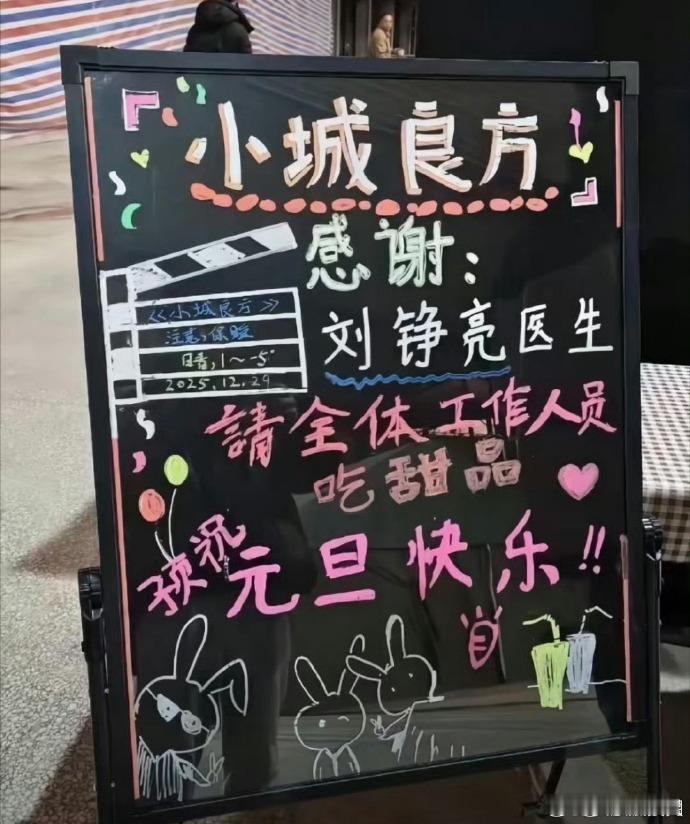 小城良方
感谢:
刘铮亮医生
《小城良方》
注意:保暖
日晴,1~-5°
2025.12.29
請全体工作人员
吃甜品
预祝元旦快乐!!